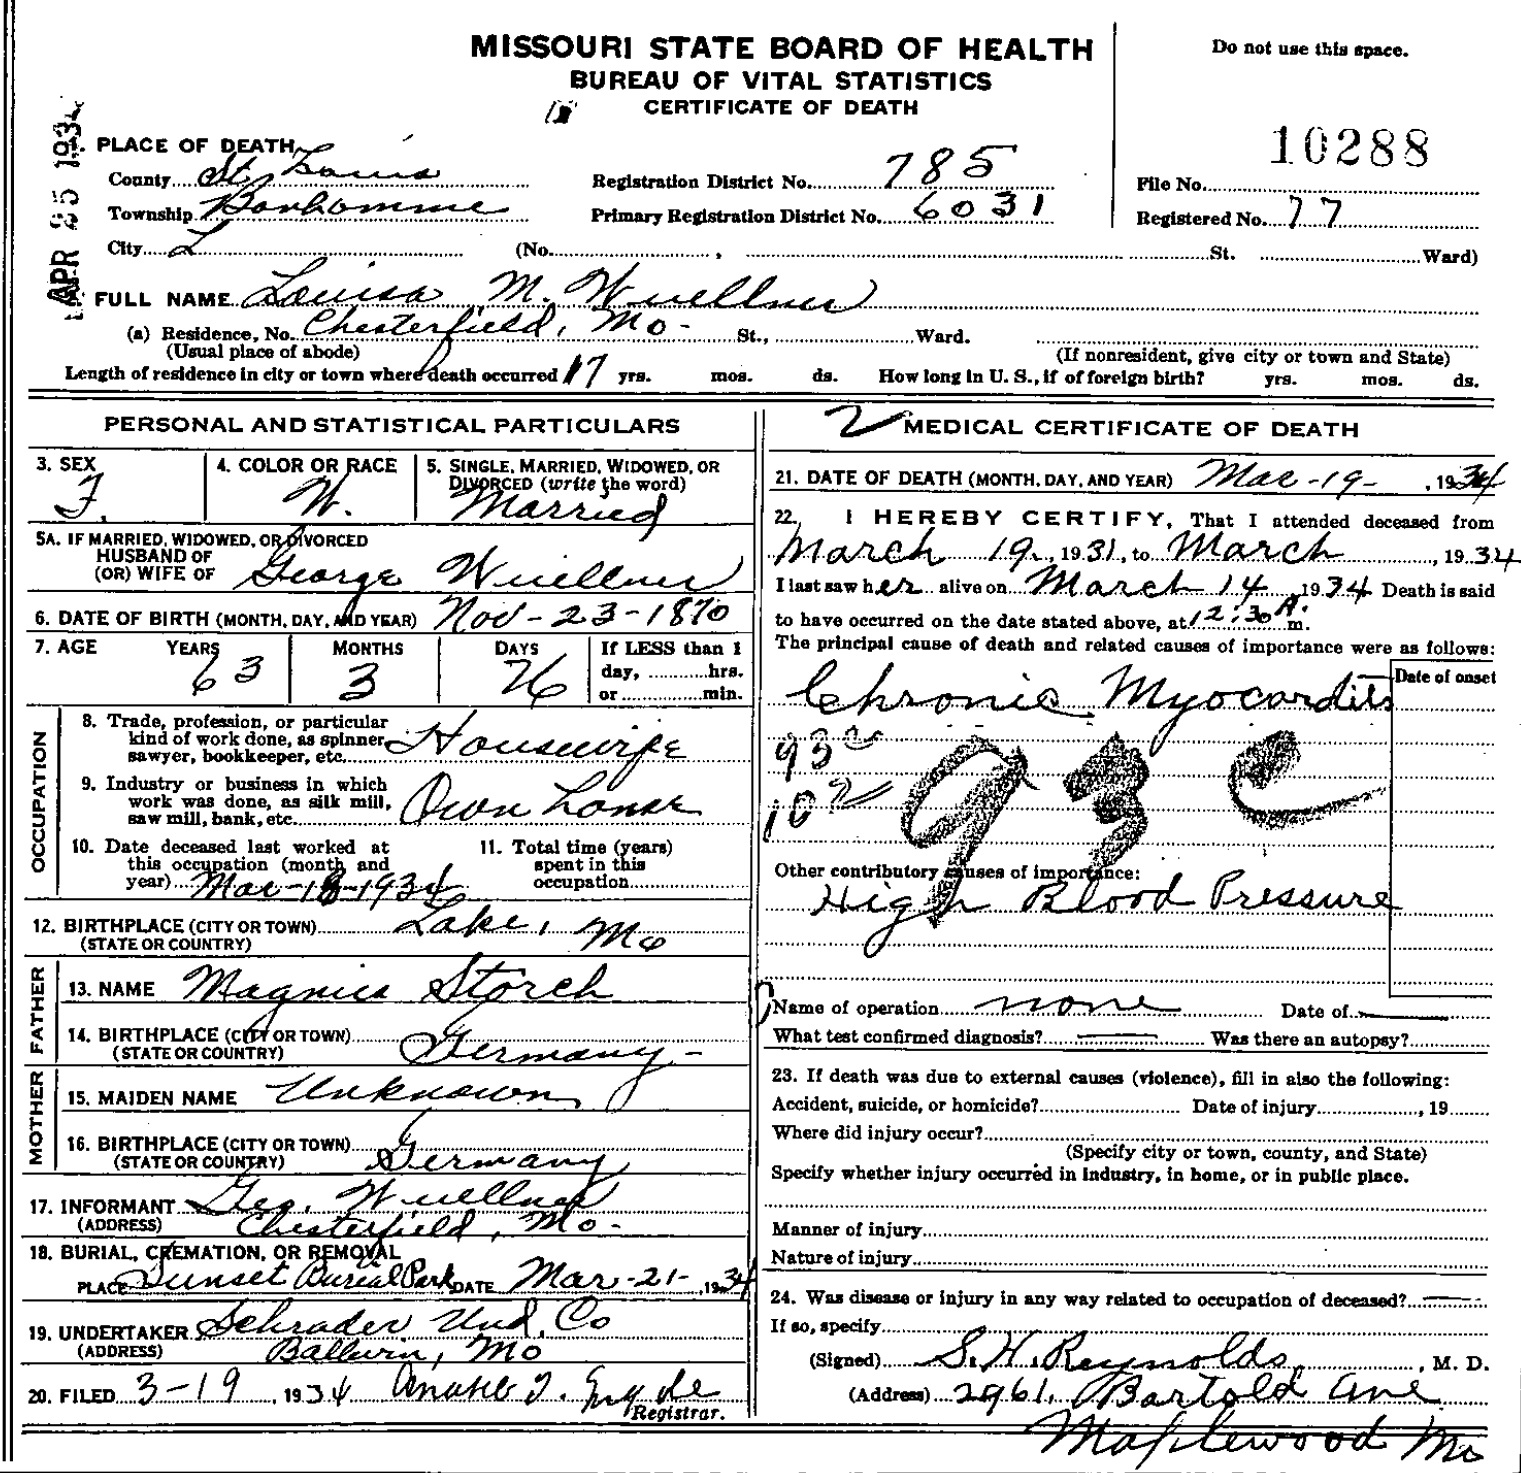 MISSOURI STATE BOARD OF HEALTH
BUREAU OF VITAL STATISTICS
CERTIFICATE OF DEATH
Do not use this space.
10288
APR 25 1934
1. PLACE OF DEATH
County St. Louis
Township Bonhomme
City
(No. , St. Ward)
Registration District No. 785
Primary Registration District No. 6031
File No.
Registered No. 77
FULL NAME Louisa M. Wuellner
(a) Residence, No. Chesterfield, Mo- St., Ward.
(Usual place of abode) (If nonresident, give city or town and State)
Length of residence in city or town where death occurred 17 yrs. mos. ds. How long in U. S., if of foreign birth? yrs. mos. ds.
PERSONAL AND STATISTICAL PARTICULARS
3. SEX F.
4. COLOR OR RACE W.
5. SINGLE, MARRIED, WIDOWED, OR DIVORCED (write the word) Married
5A. IF MARRIED, WIDOWED, OR DIVORCED
HUSBAND OF
(OR) WIFE OF George Wuellner
6. DATE OF BIRTH (MONTH, DAY, AND YEAR) Nov-23-1870
7. AGE YEARS 63 MONTHS 3 DAYS 26 If LESS than 1 day, hrs. or min.
OCCUPATION
8. Trade, profession, or particular
kind of work done, as spinner,
sawyer, bookkeeper, etc. Housewife
9. Industry or business in which
work was done, as silk mill,
saw mill, bank, etc. Own home
10. Date deceased last worked at
this occupation (month and
year) Mar-18-1934
11. Total time (years)
spent in this
occupation
12. BIRTHPLACE (CITY OR TOWN) Lake, Mo
(STATE OR COUNTRY)
FATHER
13. NAME Magnus Storch
14. BIRTHPLACE (CITY OR TOWN) Germany-
(STATE OR COUNTRY)
MOTHER
15. MAIDEN NAME Unknown
16. BIRTHPLACE (CITY OR TOWN) Germany
(STATE OR COUNTRY)
17. INFORMANT Geo. Wuellner
(ADDRESS) Chesterfield, Mo-
18. BURIAL, CREMATION, OR REMOVAL
PLACE Sunset Burial Park DATE Mar-21-, 1934
19. UNDERTAKER Schrader Und. Co
(ADDRESS) Ballwin, Mo
20. FILED 3-19, 1934
Registrar.
2
MEDICAL CERTIFICATE OF DEATH
21. DATE OF DEATH (MONTH, DAY, AND YEAR) Mar-19-, 1934
22. I HEREBY CERTIFY, That I attended deceased from
March 19, 1931, to March, 1934
I last saw her alive on March 14 1934 Death is said
to have occurred on the date stated above, at 12:30 A. m.
The principal cause of death and related causes of importance were as follows:
Date of onset
Chronic Myocardits
93c
93c
Other contributory causes of importance:
High Blood Pressure
Name of operation none Date of
What test confirmed diagnosis? Was there an autopsy?
23. If death was due to external causes (violence), fill in also the following:
Accident, suicide, or homicide? Date of injury , 19
Where did injury occur?
(Specify city or town, county, and State)
Specify whether injury occurred in industry, in home, or in public place.
Manner of injury
Nature of injury
24. Was disease or injury in any way related to occupation of deceased?
If so, specify
(Signed) S. H. Reynolds, M. D.
(Address) 2961, Bartold Ave
Maplewood Mo